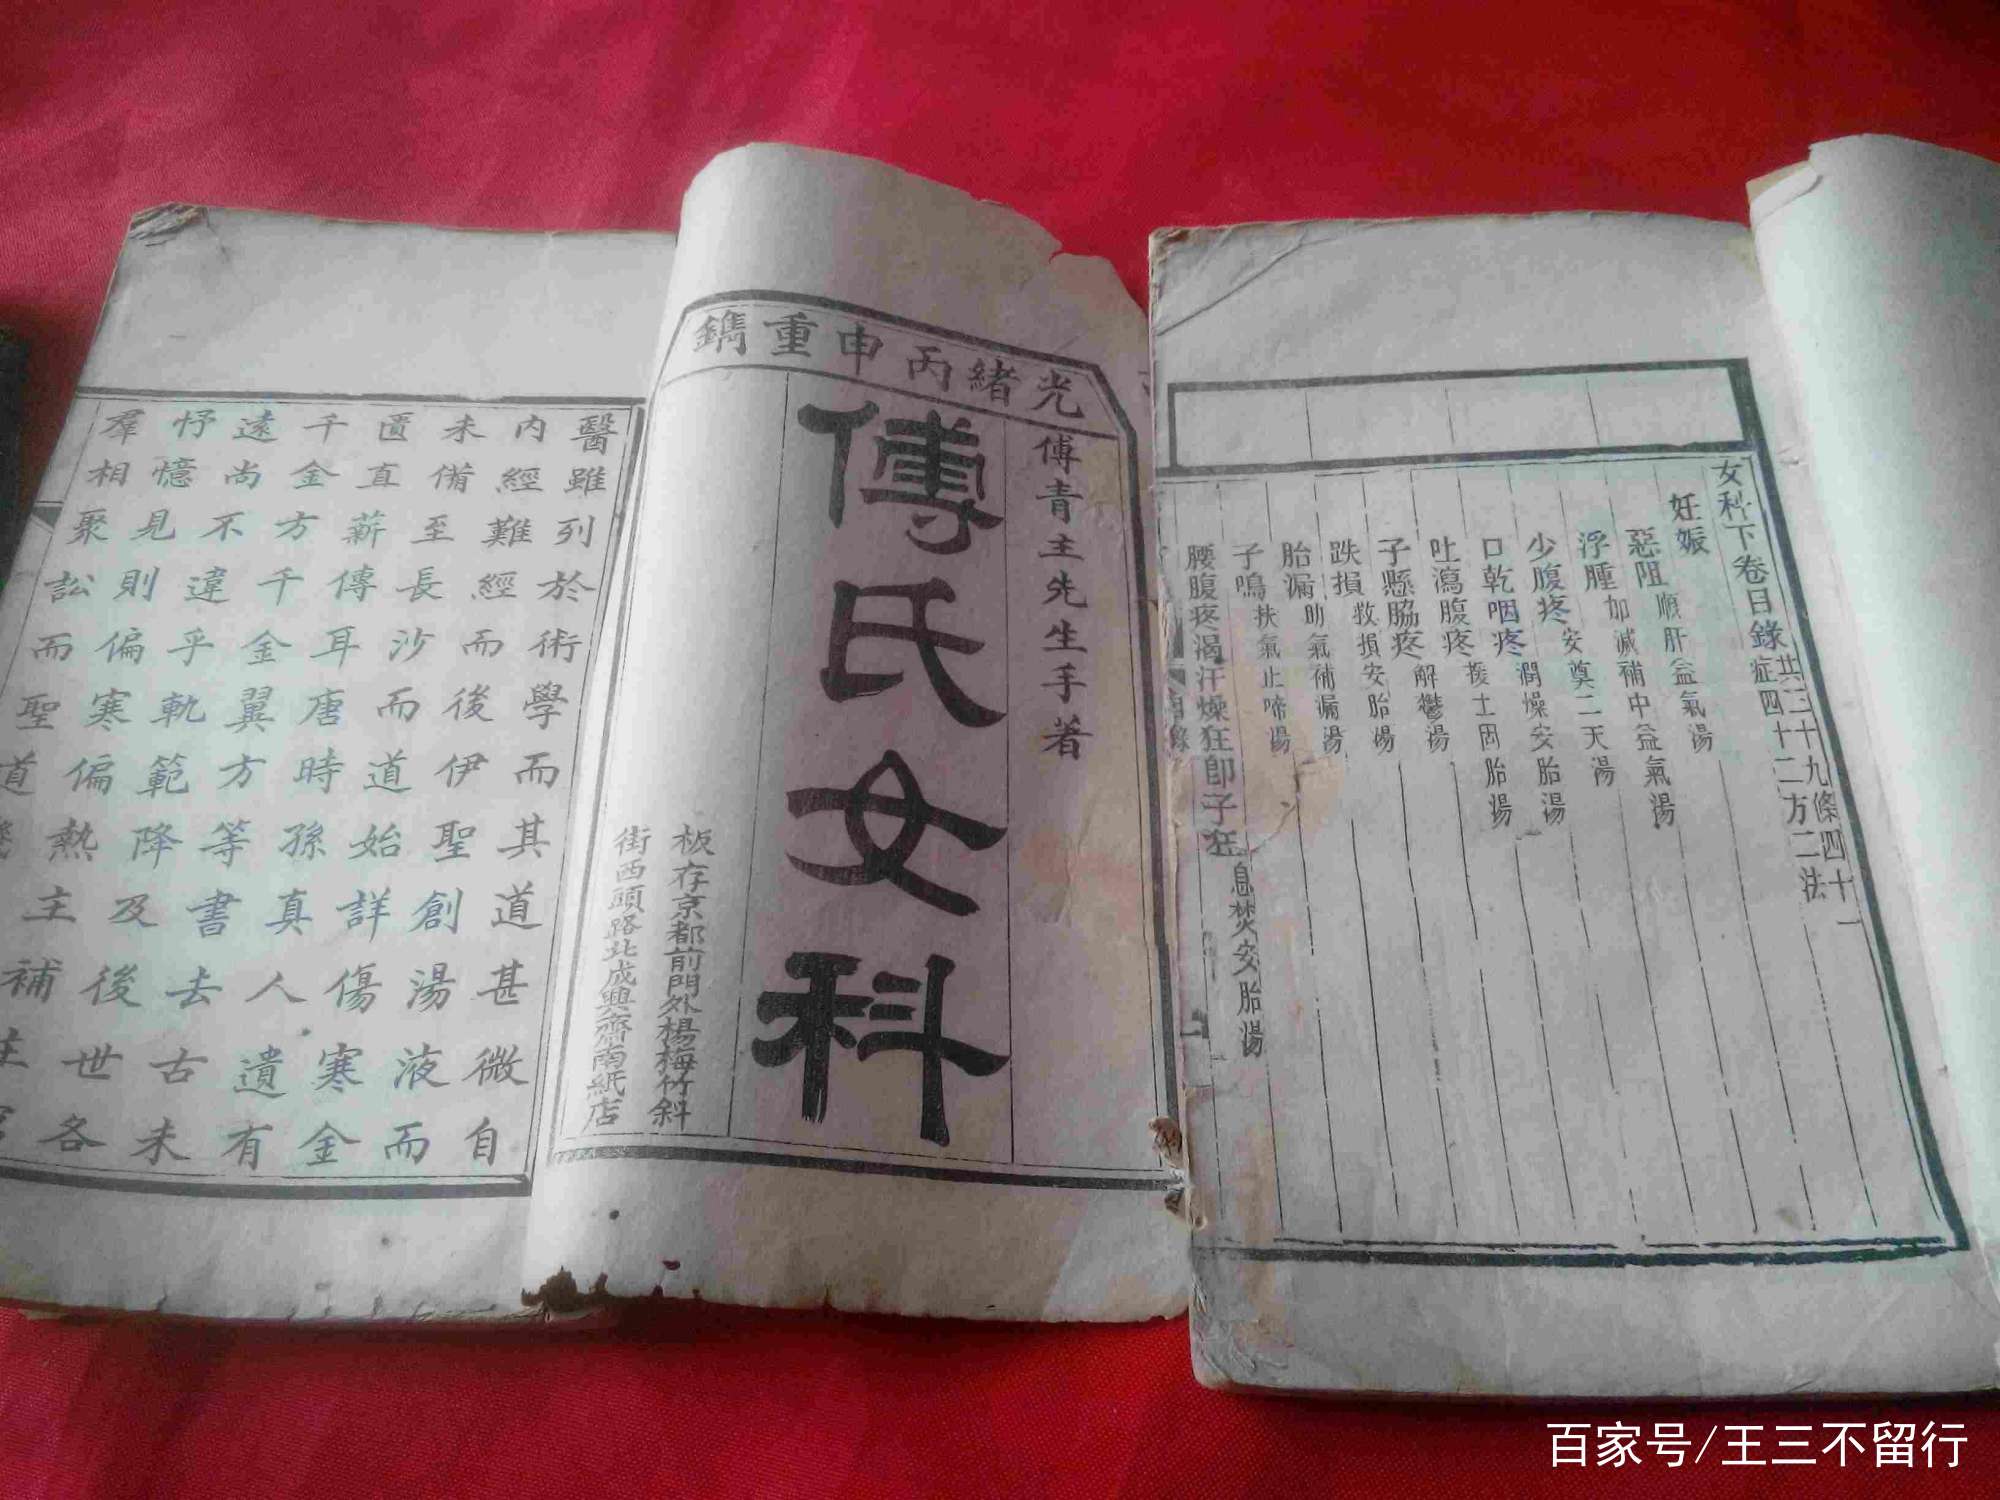 光緒丙申重鐫
傅青主先生手著
傅氏女科
板存京都前門外楊梅竹斜
街西頭路北成興齋南紙店
醫雖列於術學而其道甚微自
內經難經而後伊聖創湯液而
未備至長沙而道始詳傷寒金
匱直薪傳耳唐時孫真人遺有
千金方千金翼方等書去古未
遠尚不違乎軌範降及後世各
忬憶見則偏寒偏熱主補
羣相聚訟而聖道
女科下卷目錄 共三十九條四十一
症四十二方二法
妊娠
惡阻 順肝益氣湯
浮腫 加減補中益氣湯
少腹疼 安奠二天湯
口乾咽疼 潤燥安胎湯
吐瀉腹疼 援土固胎湯
子懸脇疼 解鬱湯
跌損 救損安胎湯
胎漏 助氣補漏湯
子鳴 扶氣止啼湯
腰腹疼渴汗燥狂卽子狂 息焚安胎湯
百家号/王三不留行